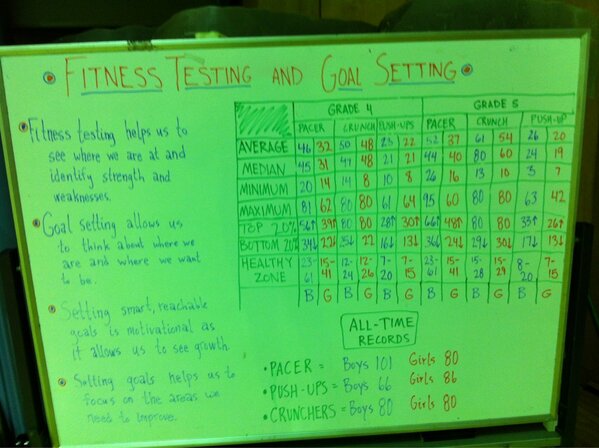 FITNESS TESTING AND GOAL SETTING
Fitness testing helps us to
see where we are at and
identify strength and
weaknesses.
Goal setting allows us
to think about where we
are and where we want
to be.
Setting smart, reachable
goals is motivational as
it allows us to see growth.
Setting goals helps us to
focus on the areas we
need to improve.
GRADE 4 GRADE 5
PACER CRUNCH PUSH-UPS PACER CRUNCH PUSH-UP
AVERAGE 46 32 50 48 23 22 52 37 61 54 26 20
MEDIAN 45 31 47 48 21 21 44 40 80 60 24 19
MINIMUM 20 14 14 8 10 8 26 16 13 10 8 7
MAXIMUM 81 62 80 80 61 64 95 60 80 80 63 42
TOP 20% 56↑ 39↑ 80 80 28↑ 30↑ 66↑ 48↑ 80 80 33↑ 26↑
BOTTOM 20% 34↓ 22↓ 25↓ 22 16↓ 13↓ 36↓ 24↓ 29↓ 30↓ 17↓ 13↓
HEALTHY ZONE 23-61 15-41 12-24 12-26 7-20 7-15 23-61 15-41 15-28 15-29 8-20 7-15
B G B G B G B G B G B G
ALL-TIME
RECORDS
• PACER = Boys 101 Girls 80
• PUSH-UPS = Boys 66 Girls 86
• CRUNCHERS = Boys 80 Girls 80